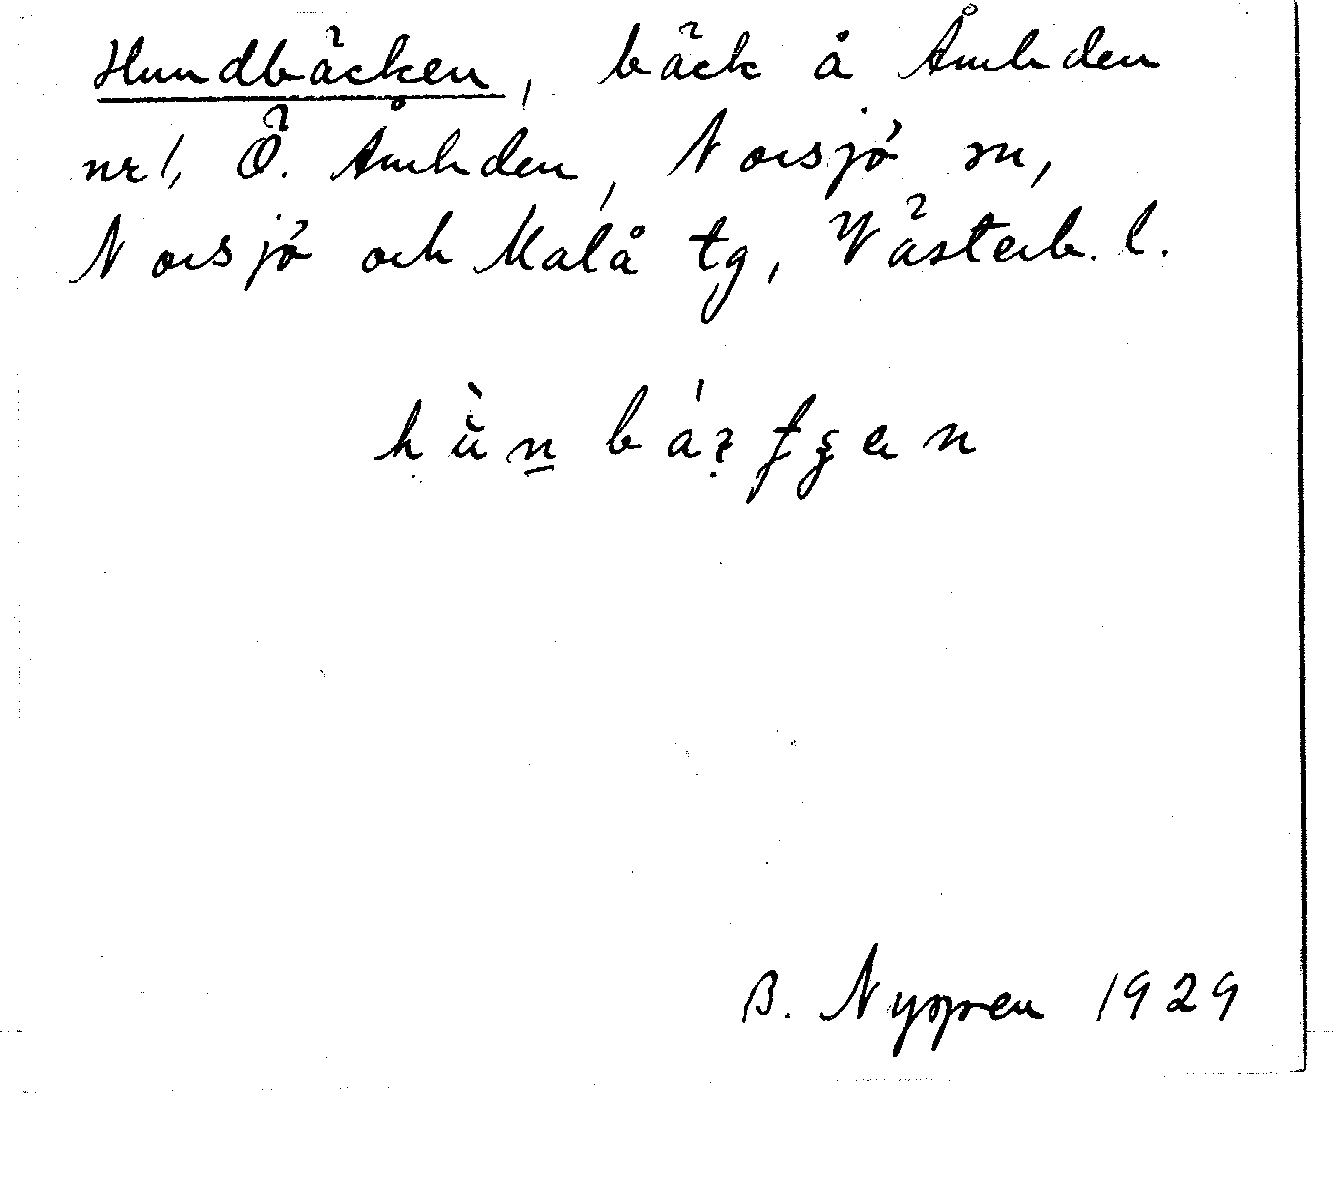 Hundbäcken, bäck å Åmliden
nr 1, Ö. Åmliden, Norsjö sn,
Norsjö och Malå tg, Västerb. l.
B. Nyppen 1929